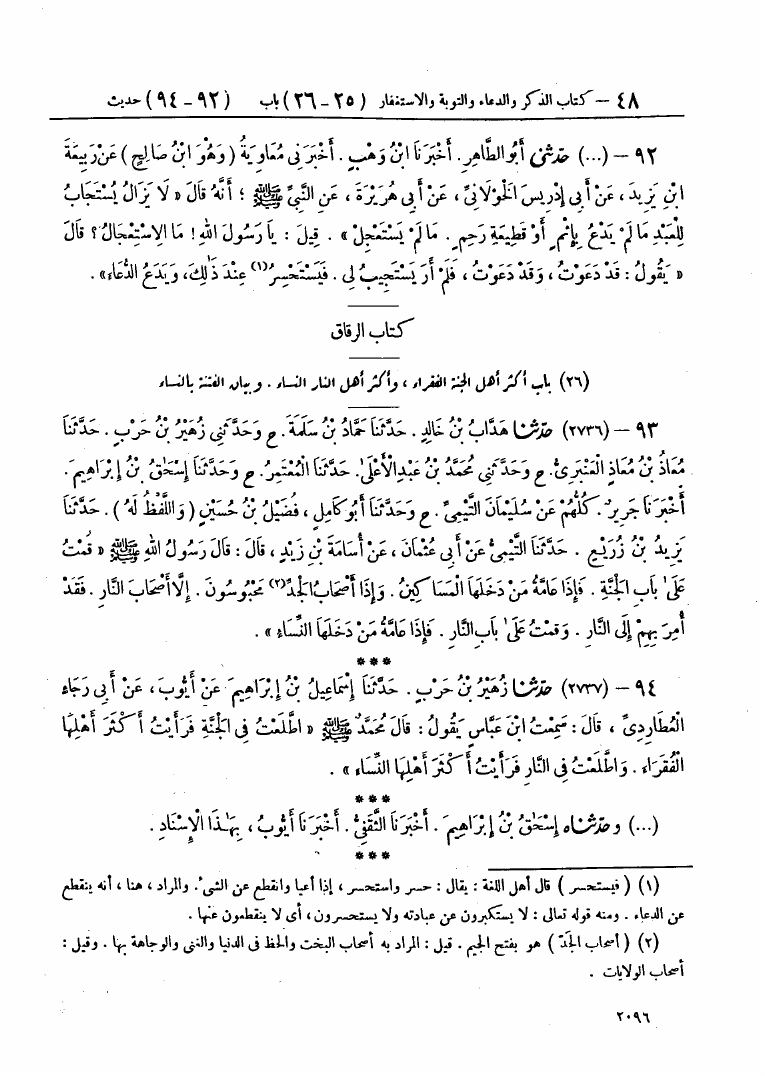 ٤٨ – كتاب الذكر والدعاء والتوبة والاستغفار (٢٥ – ٢٦) باب (٩٢ – ٩٤) حديث
٩٢ – (...) حَدَّثَنِي أَبُو الطَّاهِرِ. أَخْبَرَنَا ابْنُ وَهْبٍ. أَخْبَرَنِي مُعَاوِيَةُ (وَهُوَ ابْنُ صَالِحٍ) عَنْ رَبِيعَةَ
ابْنِ يَزِيدَ، عَنْ أَبِي إِدْرِيسَ الْخَوْلَانِيِّ، عَنْ أَبِي هُرَيْرَةَ، عَنِ النَّبِيِّ ﷺ ؛ أَنَّهُ قَالَ « لَا يَزَالُ يُسْتَجَابُ
لِلْعَبْدِ مَا لَمْ يَدْعُ بِإِثْمٍ أَوْ قَطِيعَةِ رَحِمٍ. مَا لَمْ يَسْتَعْجِلْ ». قِيلَ : يَا رَسُولَ اللهِ! مَا الِاسْتِعْجَالُ؟ قَالَ
« يَقُولُ : قَدْ دَعَوْتُ، وَقَدْ دَعَوْتُ، فَلَمْ أَرَ يَسْتَجِيبُ لِي. فَيَسْتَحْسِرُ(١) عِنْدَ ذَٰلِكَ، وَيَدَعُ الدُّعَاءَ».
كتاب الرقاق
(٢٦) باب أكثر أهل الجنة الفقراء، وأكثر أهل النار النساء. وبيان الفتنة بالنساء
٩٣ – (٢٧٣٦) حَدَّثَنَا هَدَّابُ بْنُ خَالِدٍ. حَدَّثَنَا حَمَّادُ بْنُ سَلَمَةَ. ح وَحَدَّثَنِي زُهَيْرُ بْنُ حَرْبٍ. حَدَّثَنَا
مُعَاذُ بْنُ مُعَاذٍ الْعَنْبَرِيُّ. ح وَحَدَّثَنِي مُحَمَّدُ بْنُ عَبْدِ الْأَعْلَىٰ. حَدَّثَنَا الْمُعْتَمِرُ. ح وَحَدَّثَنَا إِسْحَٰقُ بْنُ إِبْرَاهِيمَ.
أَخْبَرَنَا جَرِيرٌ. كُلُّهُمْ عَنْ سُلَيْمَانَ التَّيْمِيِّ. ح وَحَدَّثَنَا أَبُو كَامِلٍ، فُضَيْلُ بْنُ حُسَيْنٍ (وَاللَّفْظُ لَهُ). حَدَّثَنَا
يَزِيدُ بْنُ زُرَيْعٍ. حَدَّثَنَا التَّيْمِيُّ عَنْ أَبِي عُثْمَانَ، عَنْ أُسَامَةَ بْنِ زَيْدٍ، قَالَ : قَالَ رَسُولُ اللهِ ﷺ « قُمْتُ
عَلَىٰ بَابِ الْجَنَّةِ. فَإِذَا عَامَّةُ مَنْ دَخَلَهَا الْمَسَاكِينُ. وَإِذَا أَصْحَابُ الْجَدِّ(٢) مَحْبُوسُونَ. إِلَّا أَصْحَابَ النَّارِ. فَقَدْ
أُمِرَ بِهِمْ إِلَى النَّارِ. وَقُمْتُ عَلَىٰ بَابِ النَّارِ. فَإِذَا عَامَّةُ مَنْ دَخَلَهَا النِّسَاءُ ».
***
٩٤ – (٢٧٣٧) حَدَّثَنَا زُهَيْرُ بْنُ حَرْبٍ. حَدَّثَنَا إِسْمَاعِيلُ بْنُ إِبْرَاهِيمَ عَنْ أَيُّوبَ، عَنْ أَبِي رَجَاءٍ
الْعُطَارِدِيِّ، قَالَ : سَمِعْتُ ابْنَ عَبَّاسٍ يَقُولُ : قَالَ مُحَمَّدٌ ﷺ « اطَّلَعْتُ فِي الْجَنَّةِ فَرَأَيْتُ أَكْثَرَ أَهْلِهَا
الْفُقَرَاءَ. وَاطَّلَعْتُ فِي النَّارِ فَرَأَيْتُ أَكْثَرَ أَهْلِهَا النِّسَاءَ ».
***
(...) وَحَدَّثَنَاه إِسْحَٰقُ بْنُ إِبْرَاهِيمَ. أَخْبَرَنَا الثَّقَفِيُّ. أَخْبَرَنَا أَيُّوبُ، بِهَٰذَا الْإِسْنَادِ.
***
(١) (فيستحسر) قال أهل اللغة : يقال : حسر واستحسر، إذا أعيا وانقطع عن الشيء. والمراد، هنا، أنه ينقطع
عن الدعاء. ومنه قوله تعالى : لا يستكبرون عن عبادته ولا يستحسرون، أى لا ينقطعون عنها.
(٢) (أصحاب الجَدّ) هو بفتح الجيم. قيل : المراد به أصحاب البخت والحظ فى الدنيا والغنى والوجاهة بها. وقيل :
أصحاب الولايات.
٢٠٩٦